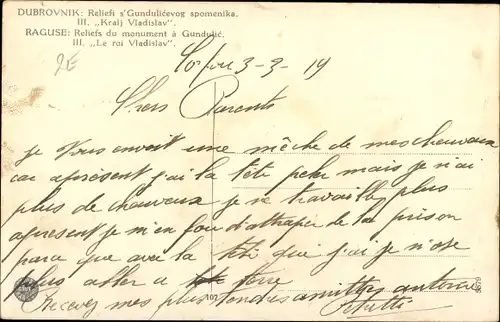 DUBROVNIK: Reliefi s'Gundulićevog spomenika.
III. „Kralj Vladislav".
RAGUSE: Reliefs du monument à Gundulić.
III. „Le roi Vladislav".
2E
3-3-19
Chers Parents
Je vous envoit une mêche de mes cheuvaux
car aprésent j'ai la tête peler mais je n'ai
plus de cheuvaux je ne travaille plus
apresent je m'en fou d'attraper de la prison
para que avec la tété que j'ai je n'ose
plus aller a terre
Recevez mes plus tendres amitiés antoine